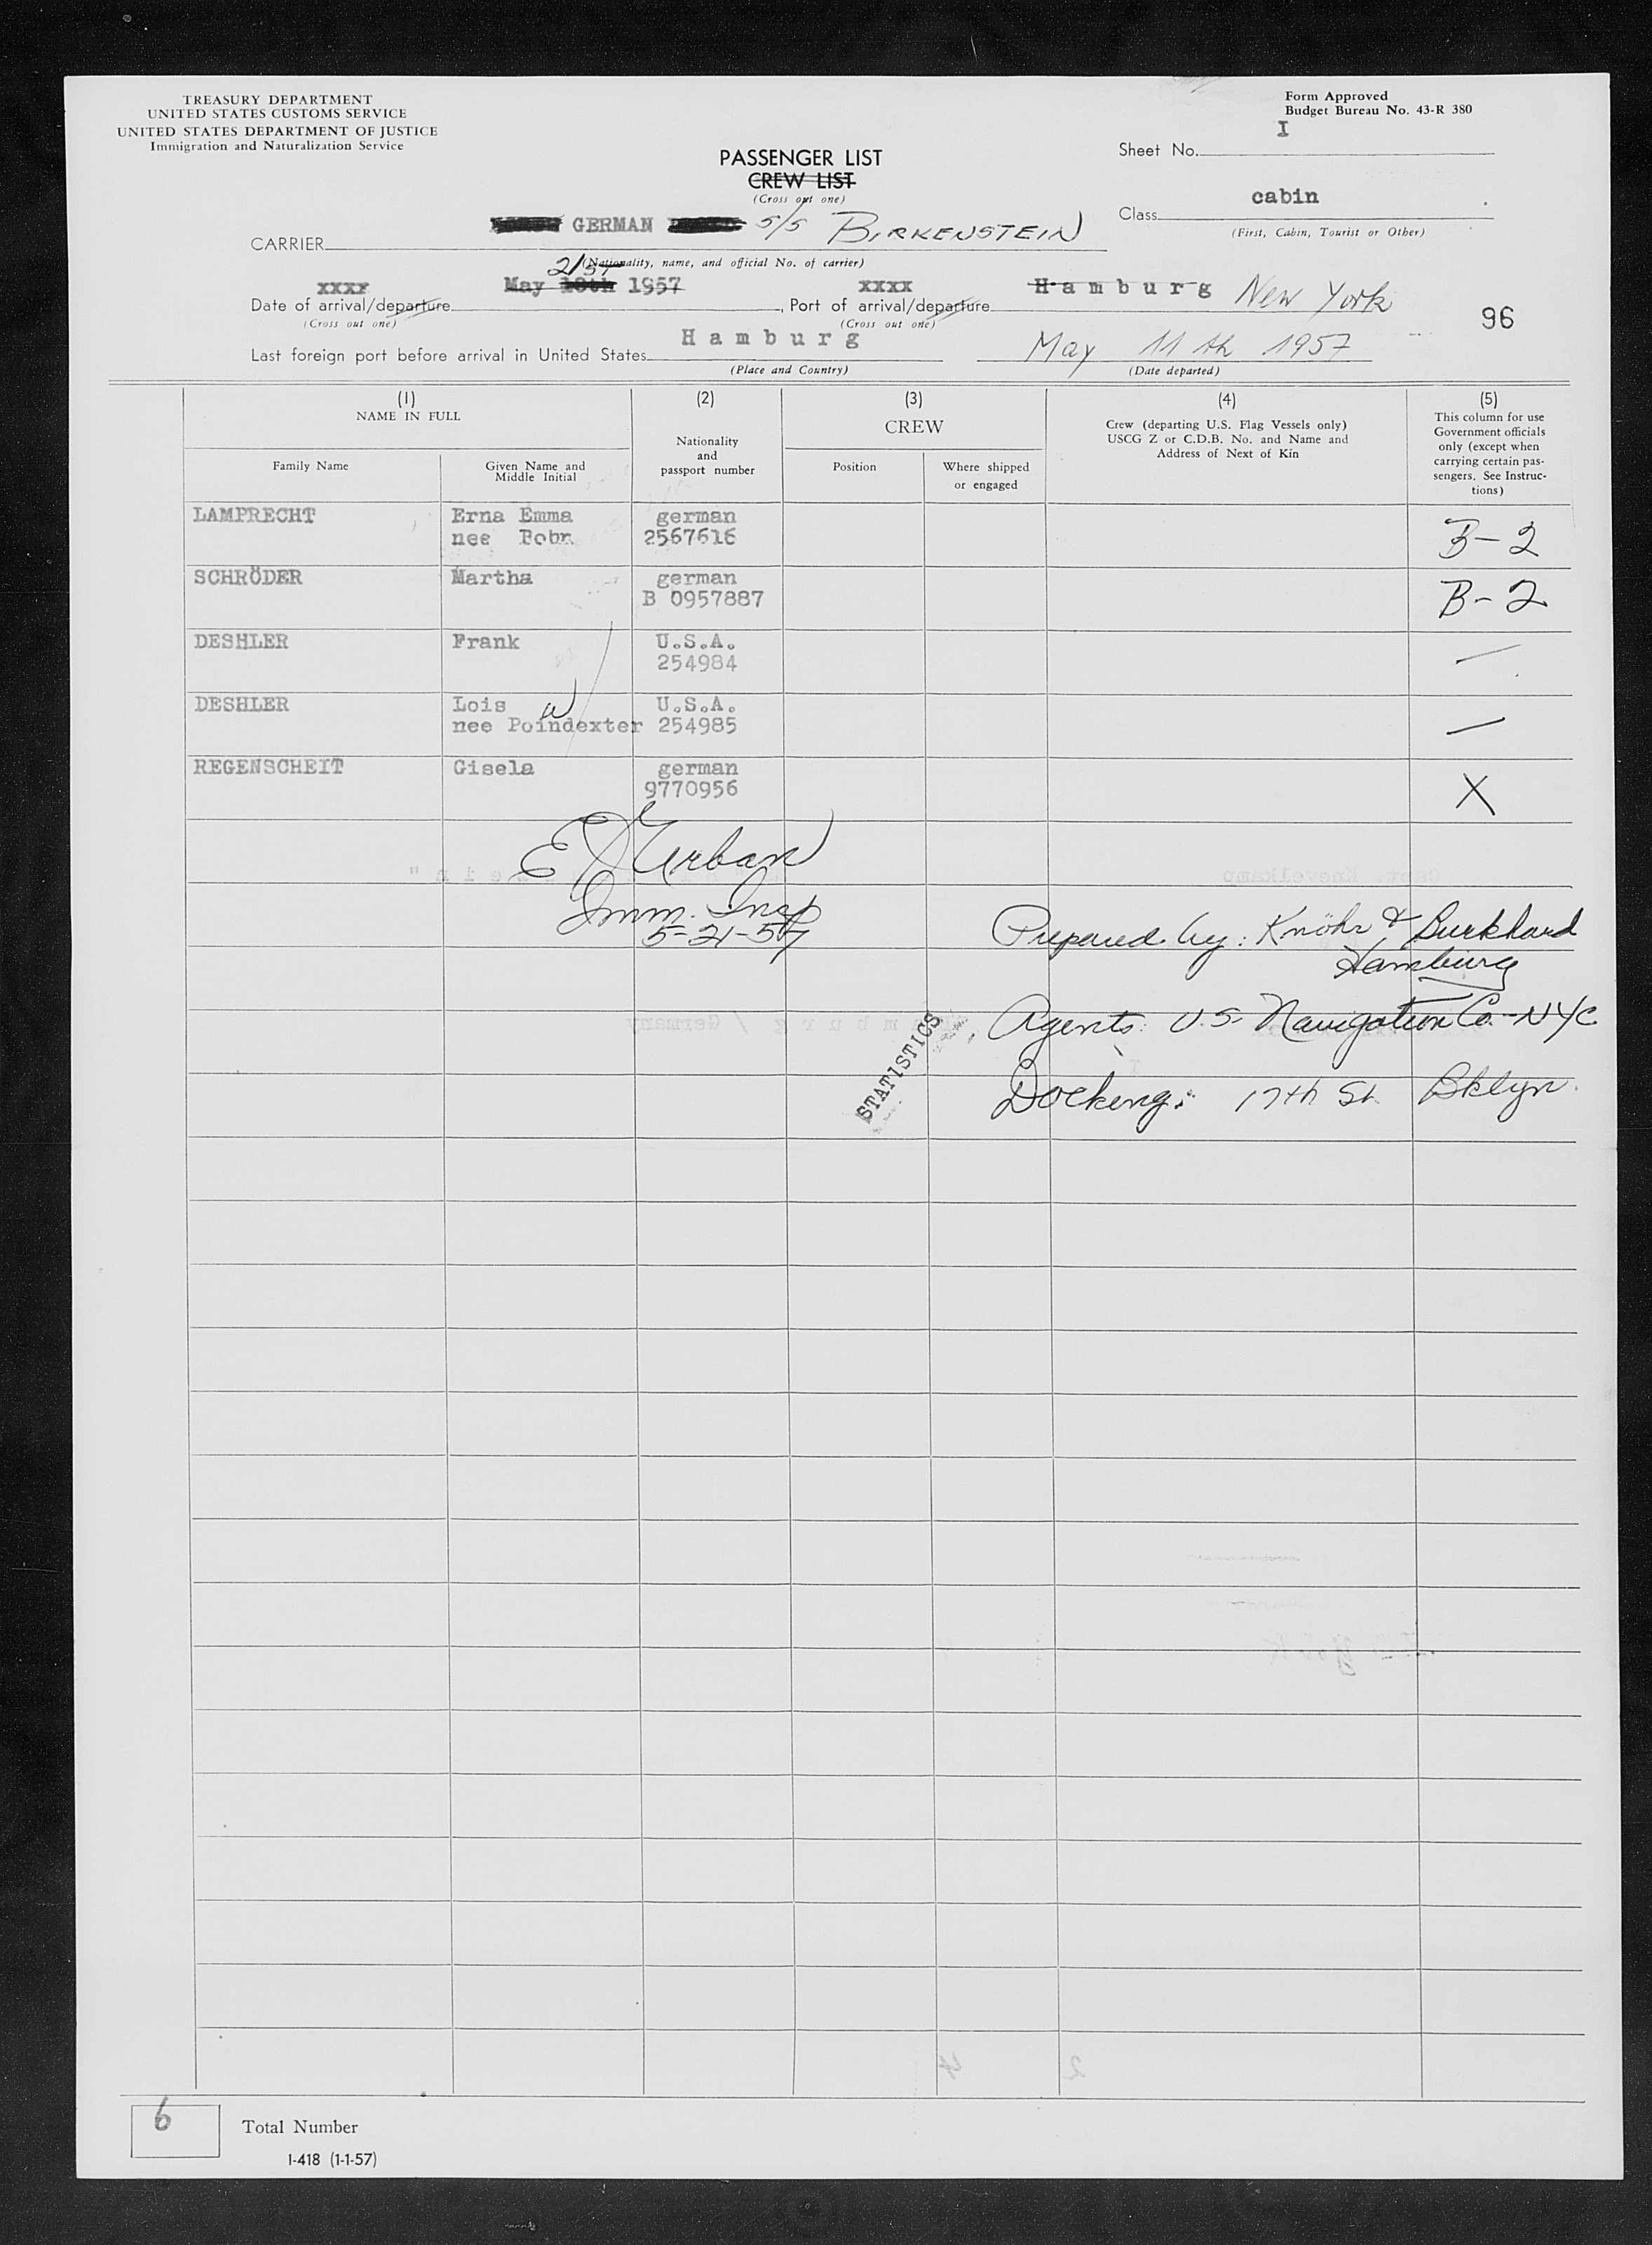 TREASURY DEPARTMENT
UNITED STATES CUSTOMS SERVICE
UNITED STATES DEPARTMENT OF JUSTICE
Immigration and Naturalization Service
Form Approved
Budget Bureau No. 43-R 380
Sheet No. I
PASSENGER LIST
CREW LIST
(Cross out one)
Class cabin
(First, Cabin, Tourist or Other)
CARRIER GERMAN S/S BIRKENSTEIN
(Nationality, name, and official No. of carrier)
21st
xxxx May 18th 1957 xxxx Hamburg New York
Date of arrival/departure , Port of arrival/departure
(Cross out one) (Cross out one)
96
Last foreign port before arrival in United States Hamburg May 11th 1957
(Place and Country) (Date departed)
(1) (2) (3) (4) (5)
NAME IN FULL
Family Name
Given Name and
Middle Initial
Nationality
and
passport number
CREW
Position
Where shipped
or engaged
Crew (departing U.S. Flag Vessels only)
USCG Z or C.D.B. No. and Name and
Address of Next of Kin
This column for use
Government officials
only (except when
carrying certain pas-
sengers. See Instruc-
tions)
LAMPRECHT Erna Emma german B-2
nee 2567616
SCHRÖDER Martha german B-2
B 0957887
DESHLER Frank U.S.A. —
254984
DESHLER Lois W U.S.A. —
nee Poindexter 254985
REGENSCHEIT Gisela german X
9770956
E J Urban
Imm. Insp
5-21-57
Prepared by: Knöhr & Burkhard
Hamburg
Agents: U.S. Navigation Co.-NYC
STATISTICS
Docking: 17th St. Bklyn.
6 Total Number
I-418 (1-1-57)